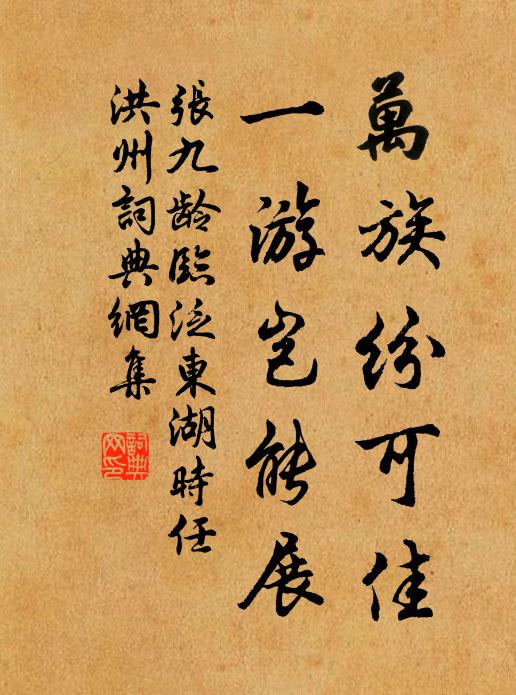 萬族紛可佳
一游豈能展
張九龄臨泛東湖時任
洪州詞典網集
詞典网印